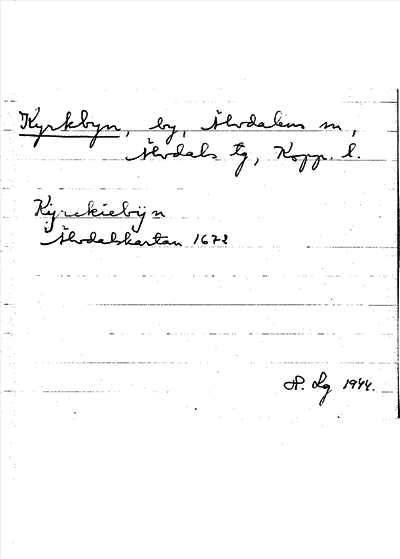 Kyrkbyn, by, Älvdalens sn,
Älvdals tg, Kopp. l.
Kyrckiebÿn
Älvdalskartan 1672
H. Lg 1944.